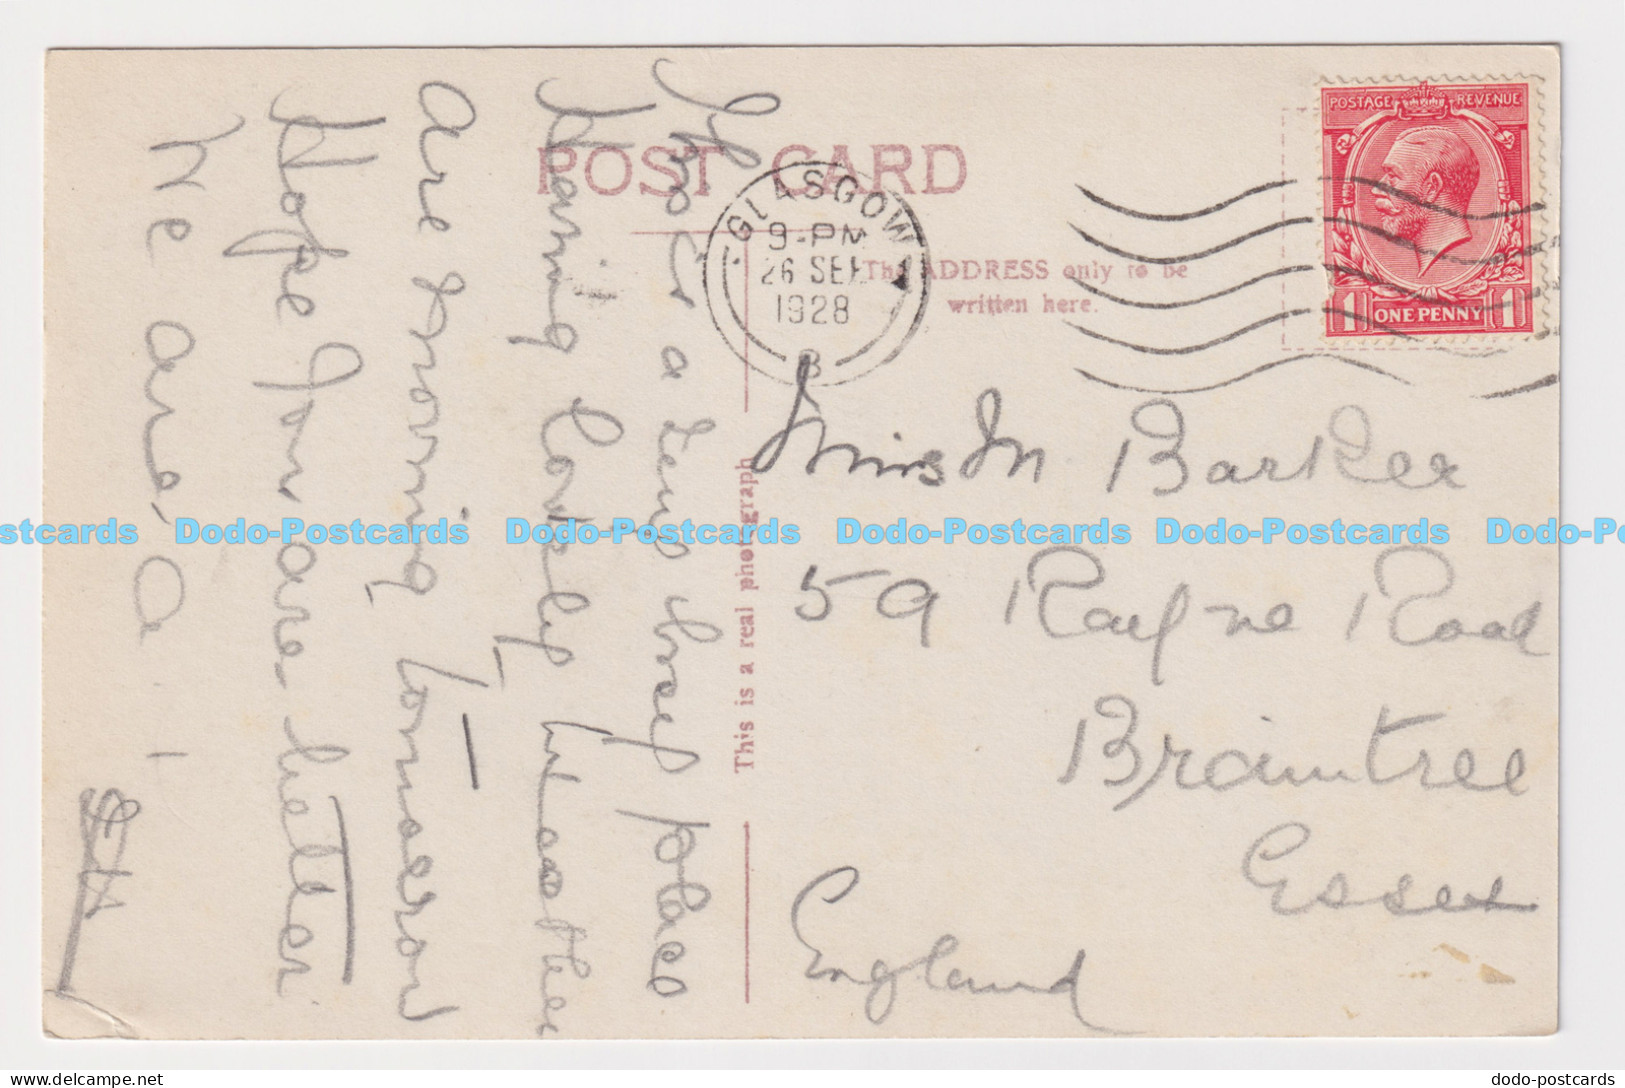 POST CARD
GLASGOW
9-PM
26 SEP
1928
B
POSTAGE REVENUE
1 ONE PENNY 1
The ADDRESS only to be
written here.
This is a real photograph
This is a very busy place
Having lovely weather
are moving tomorrow
Hope you are better
We are. A. 1
Miss M Barker
59 Rayne Road
Braintree
Essex
England
Dodo-Postcards Dodo-Postcards Dodo-Postcards Dodo-Postcards Dodo-Postcards
dodo-postcards.com